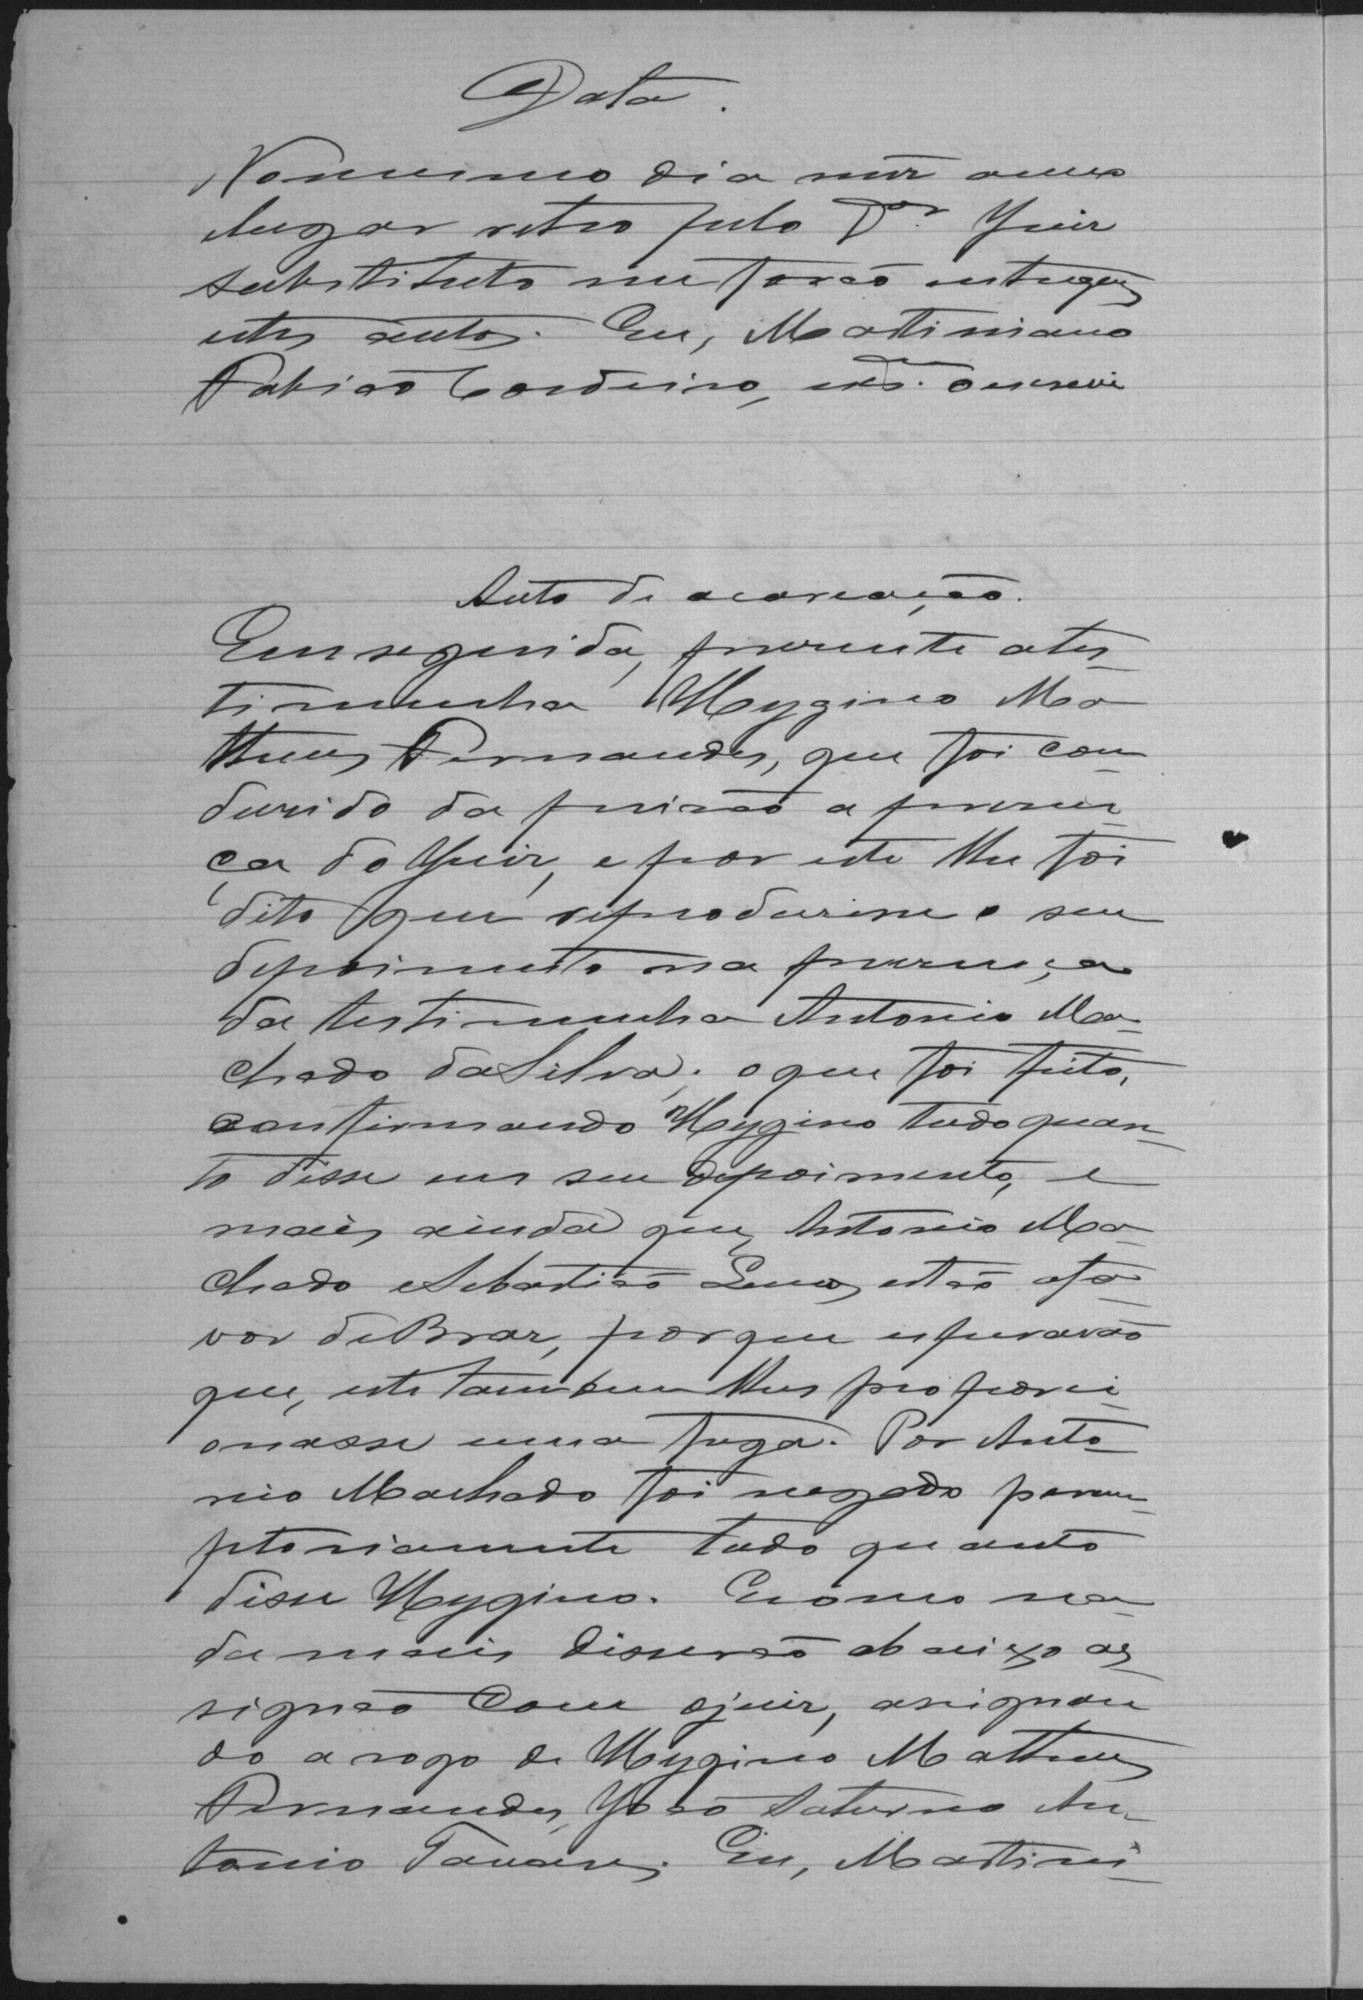 Data.
No mesmo dia mez anno
lugar retro pelo Dor. Juiz
substituto me forão entregues
estes autos. Eu, Martiniano
Fabião Cordeiro, esc.am o escrevi
Auto de acareação.
Em seguida, presente a tes-
timunha Hygino Ma-
theus Fernandes, que foi con-
duzido da prisão a presen-
ça do Juiz, e por este lhe foi
dito que reproduzisse o seu
depoimento na presença
da testimunha Antonio Ma-
chado da Silva; o que foi feito,
confirmando Hygino tudo quan-
to disse em seu depoimento, e
mais ainda que, Antonio Ma-
chado e Sebastião Lemos estão a fa-
vor de Braz, porque esperavão
que, este tambem lhes proporci-
onasse uma fuga. Por Anto-
nio Machado foi negado perem-
ptoriamente tudo quanto
disse Hygino. E como na-
da mais disserão abaixo as-
signão com o juiz, assignan-
do a rogo de Hygino Matheus
Fernandes, João Saturno An-
tonio Tavares. Eu, Martini-